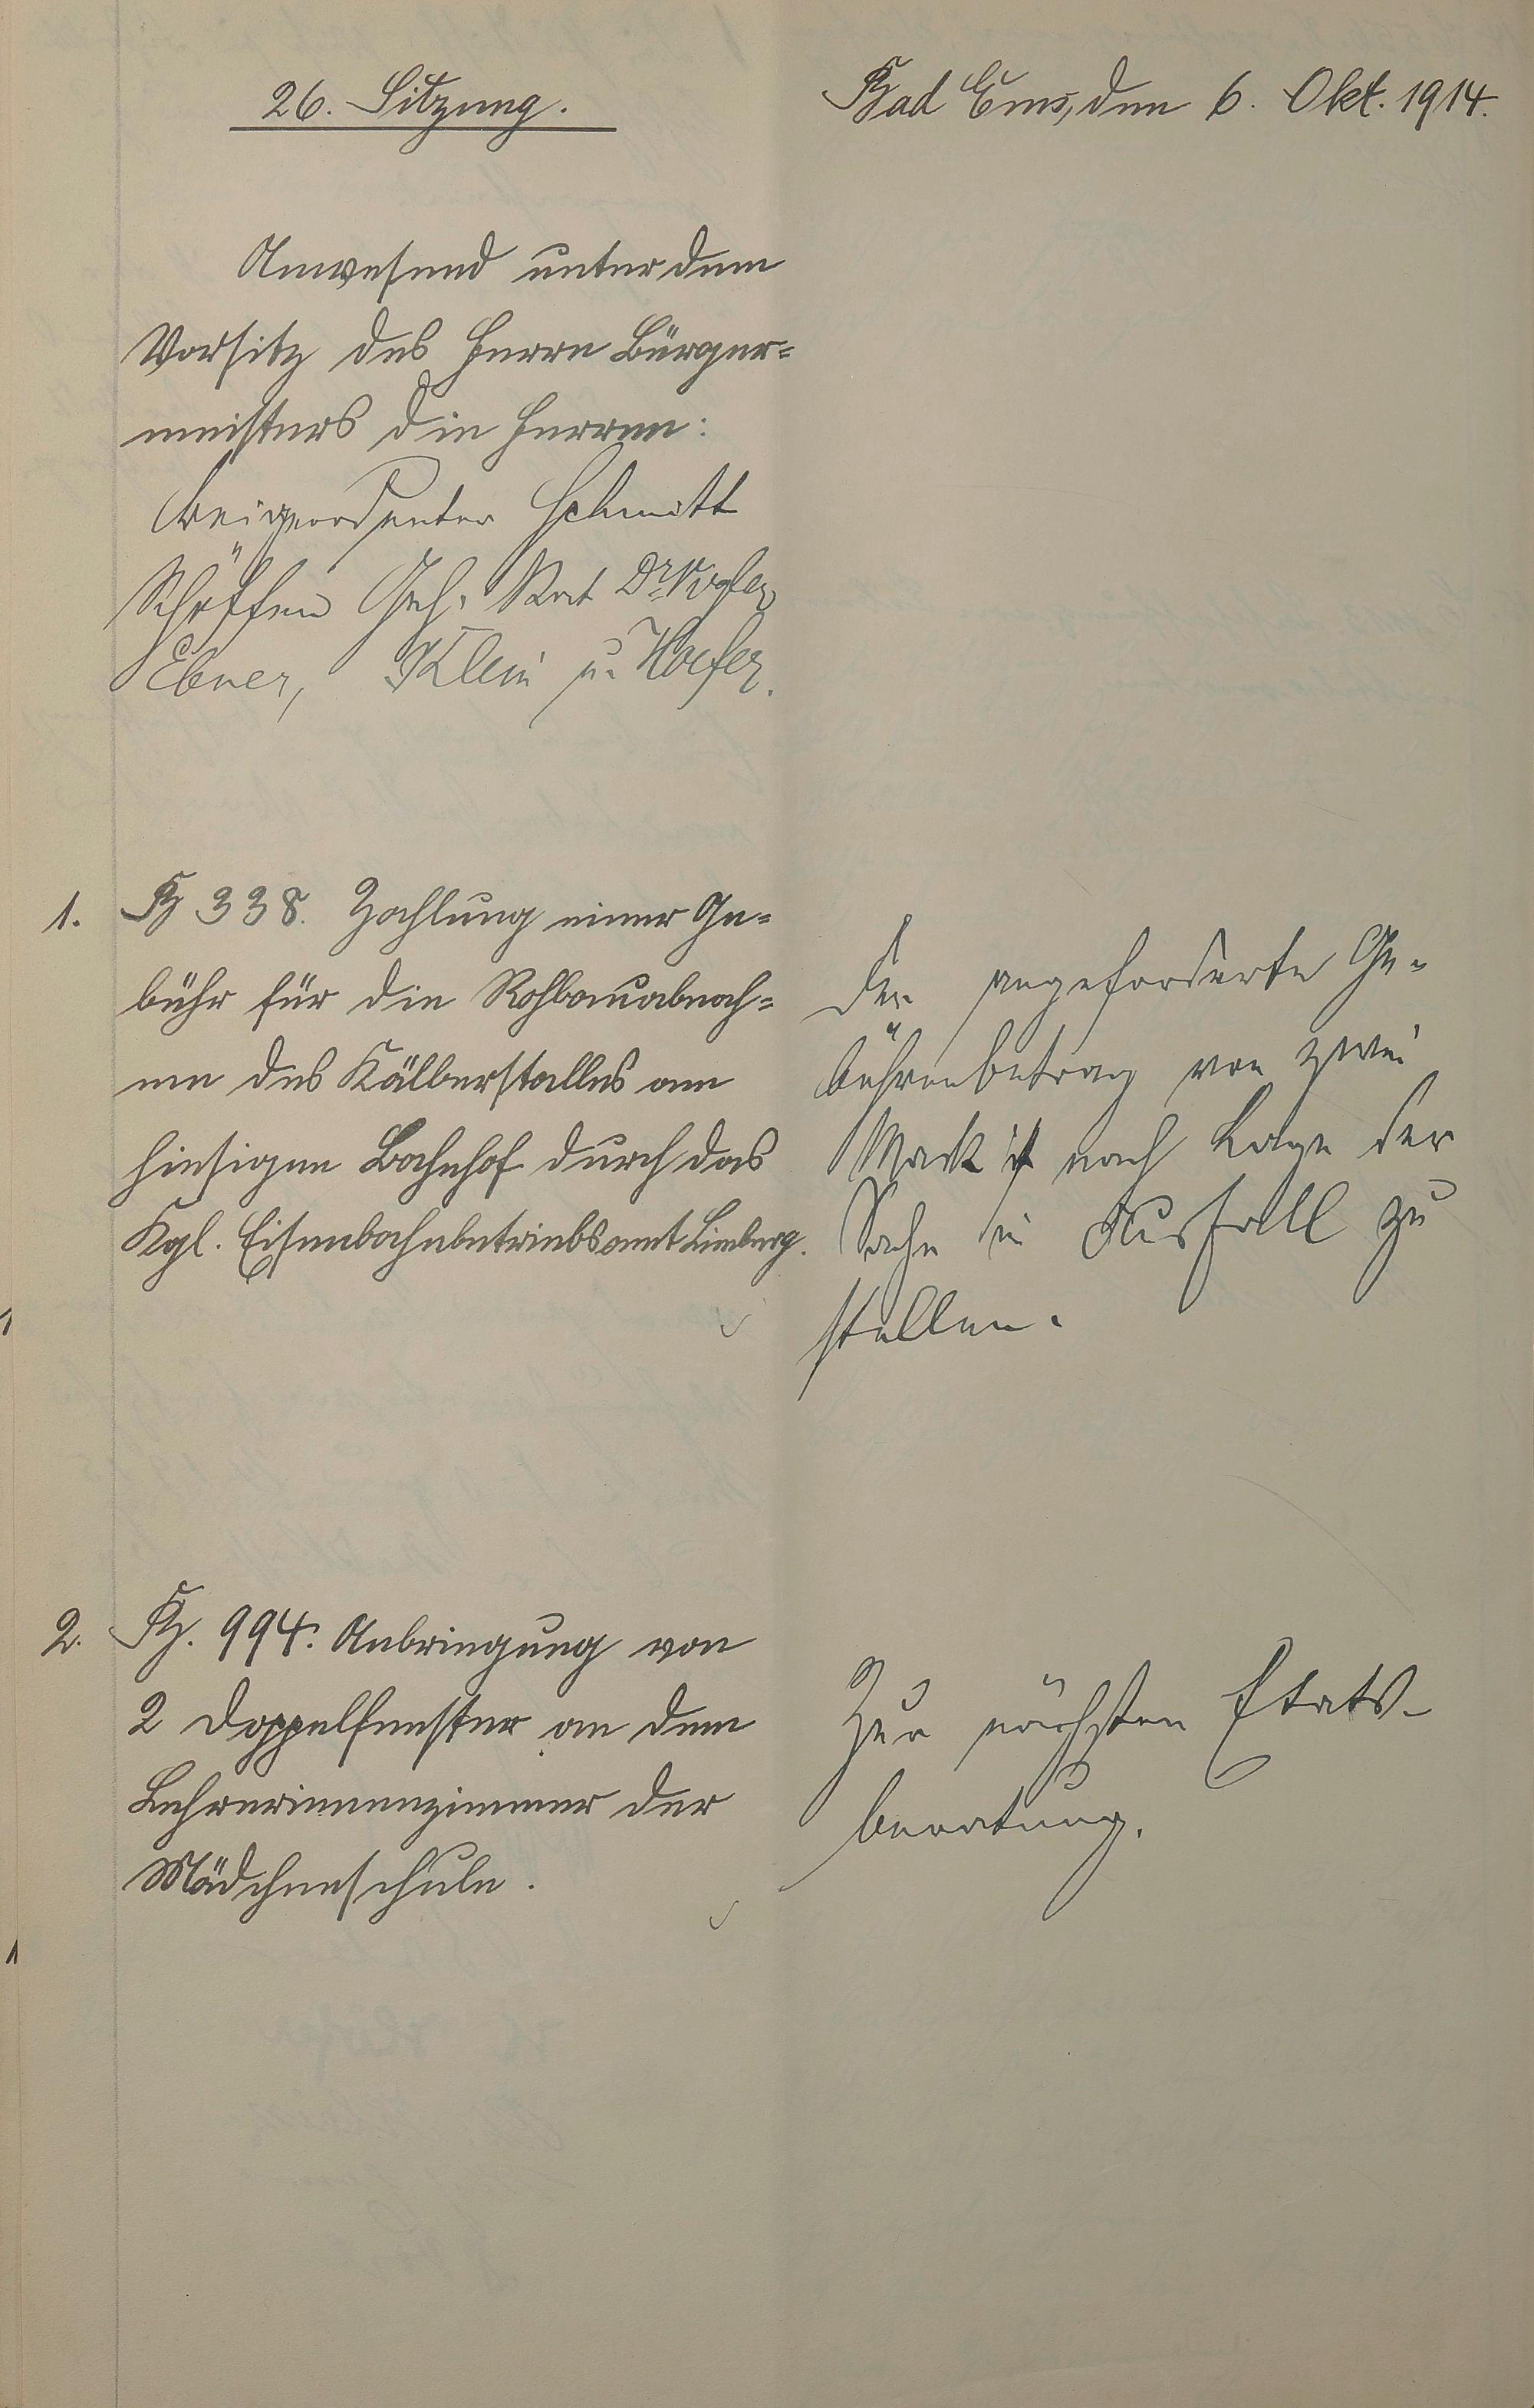 26. Sitzung.
Bad Ems, den 6. Okt. 1914.
Anwesend unter dem
Vorsitz des Herrn Bürger=
meisters die Herren:
Beigeordneter Schmitt
Schöffen Geh. Rat Dr. Vogler,
Ebner, Klein u. Hoefer.
1. B 338. Zahlung einer Ge=
bühr für die Rohbauabnah=
me des Kälberstalles am
hiesigen Bahnhof durch das
Kgl. Eisenbahnbetriebsamt Limburg.
Der angeforderte Ge-
bührenbetrag von zwei
Mark ist nach Lage der
Sache in Ausfall zu
stellen.
2. 994. Anbringung von
2 Doppelfenster an dem
Lehrerinnenzimmer der
Mädchenschule.
Zur nächsten Etats-
beratung.